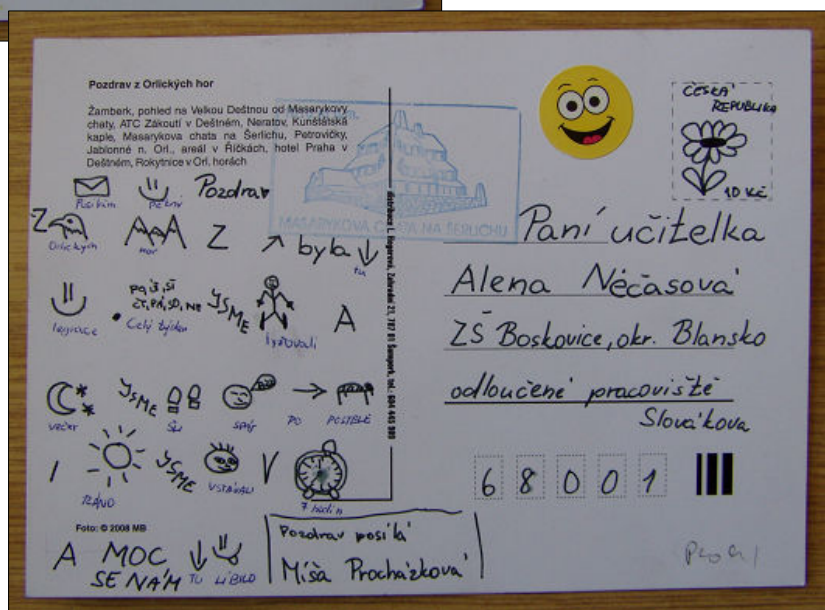 Pozdrav z Orlických hor
Žamberk, pohled na Velkou Deštnou od Masarykovy
chaty, ATC Zákoutí v Deštném, Neratov, Kunštátská
kaple, Masarykova chata na Šerlichu, Petrovičky,
Jablonné n. Orl., areál v Říčkách, hotel Praha v
Deštném, Rokytnice v Orl. horách
MASARYKOVA CHATA NA ŠERLICHU
Posílám pěkný Pozdrav
Z Orlických hor Z byla tu
legrace PO, ÚT, ST ČT, PÁ, SO, NE Celý týden JSME lyžovali A
večer JSME šli spát PO POSTELE
I RÁNO JSME VSTÁVALI V 7 hodin
Foto: © 2008 MB
A MOC SE NÁM TU LÍBILO
Pozdrav posílá
Míša Procházková
ČESKÁ
REPUBLIKA
10 Kč
Paní učitelka
Alena Néčasová
ZŠ Boskovice, okr. Blansko
odloučené pracoviště
Slovákova
6 8 0 0 1